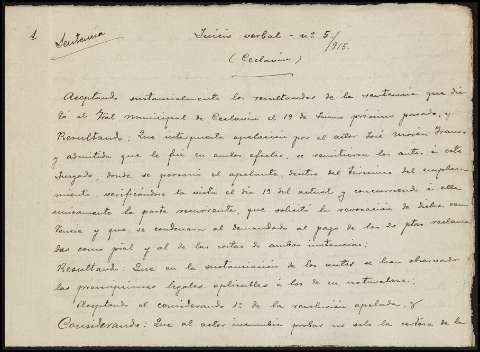 1
Sentencia
Juicio verbal - nº 5/915.
(Ceclavin)
Aceptando sustancialmente los resultandos de la sentencia que dic
tó el Tral municipal de Ceclavin el 19 de Junio próximo pasado, y
Resultando: Que interpuesta apelación por el actor José Morán
y admitida que le fué en ambos efectos, se remitieron los autos a este
Juzgado, donde se personó el apelante, dentro del término del emplaza-
miento, verificándose la vista el dia 19 del actual y concurriendo á ella
unicamente la parte recurrente, que solicitó la revocación de dicha sen
tencia y que se condenara al demandado al pago de las ptas reclama
das como pral y al de las costas de ambas instancias;
Resultando: Que en la sustanciación de los autos se han observado
las prescripciones legales aplicables á los de su naturaleza;
Aceptando el considerando 1º de la resolución apelada, y
Considerando: Que al actor incumbe probar no solo la certeza de la